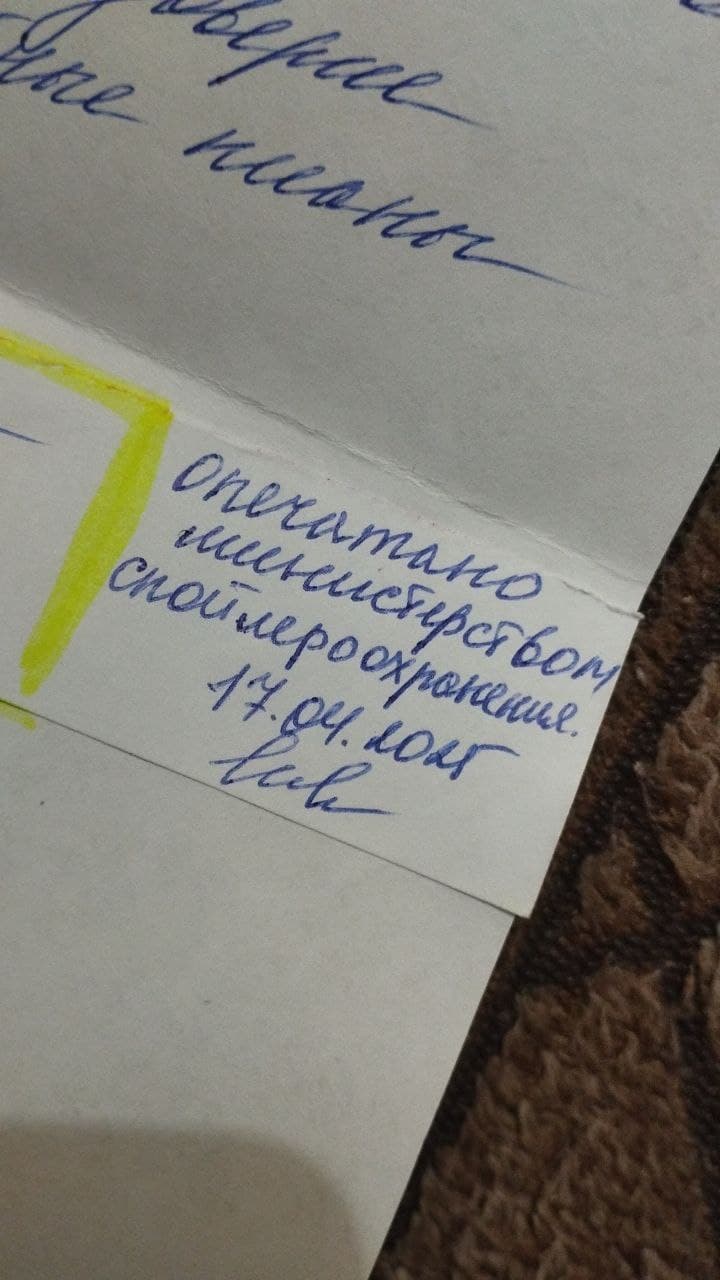 ные планы
опечатано
министерством
спойлероохранения.
17.04.2025